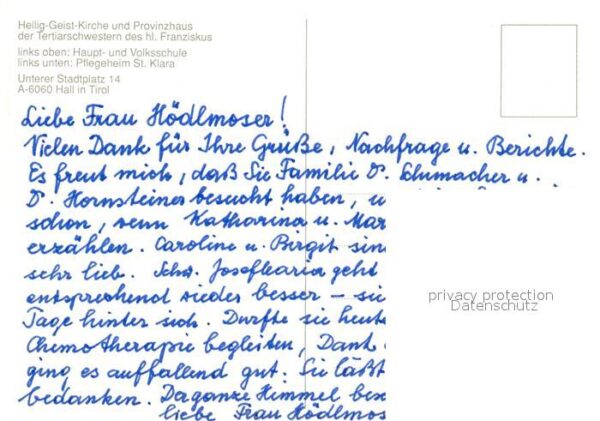 Heilig-Geist-Kirche und Provinzhaus
der Tertiarschwestern des hl. Franziskus
links oben: Haupt- und Volksschule
links unten: Pflegeheim St. Klara
Unterer Stadtplatz 14
A-6060 Hall in Tirol
Liebe Frau Hödlmoser!
Vielen Dank für Ihre Grüße, Nachfrage u. Berichte.
Es freut mich, daß Sie Familie D. Schumacher u.
D. Hornsteiner besucht haben, u
schon, wenn Katharina u. Mar
erzählen. Caroline u. Birgit sin
sehr lieb. Schw. Josefmaria geht
entsprechend wieder besser – sie
Tage hinter sich. Durfte sie heute
Chemotherapie begleiten, Dank
ging es auffallend gut. Sie läßt
bedanken. Der ganze Himmel bes
liebe Frau Hödlmos
privacy protection
Datenschutz